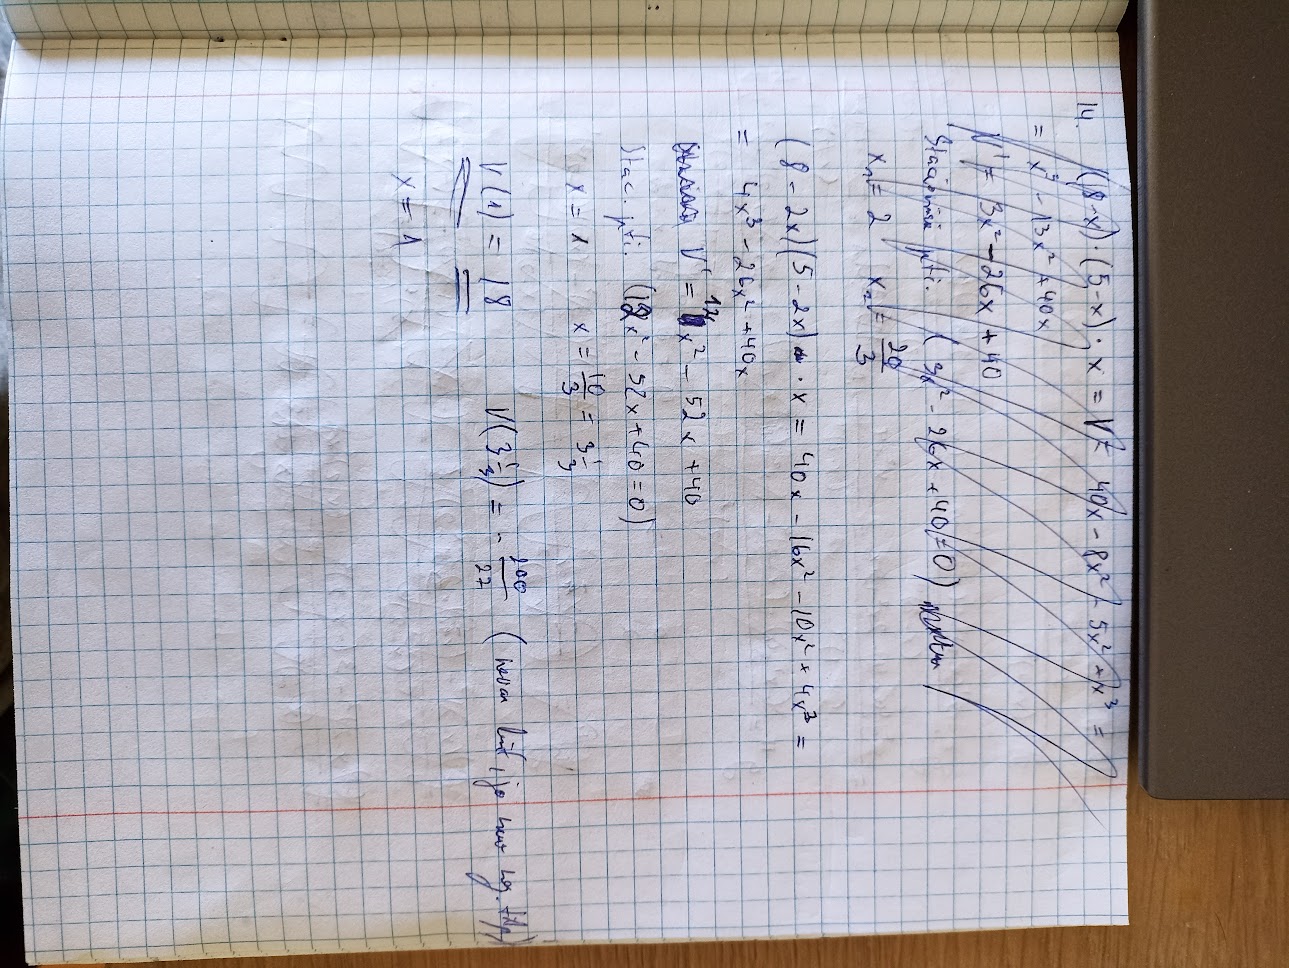 14. (8-x)·(5-x)·x = V = 40x - 8x² - 5x² + x³ =
= x³ - 13x² + 40x
V' = 3x² - 26x + 40
Stacionární (3x² - 26x + 40 = 0)
x₁ = 2 x₂ = 20/3
(8 - 2x)(5 - 2x) · x = 40x - 16x² - 10x² + 4x³ =
= 4x³ - 26x² + 40x
V' = 12x² - 52x + 40
Stac. (12x² - 52x + 40 = 0)
x = 1 x = 10/3 = 3⅓
V(1) = 18 V(3⅓) = - 200/27
x = 1